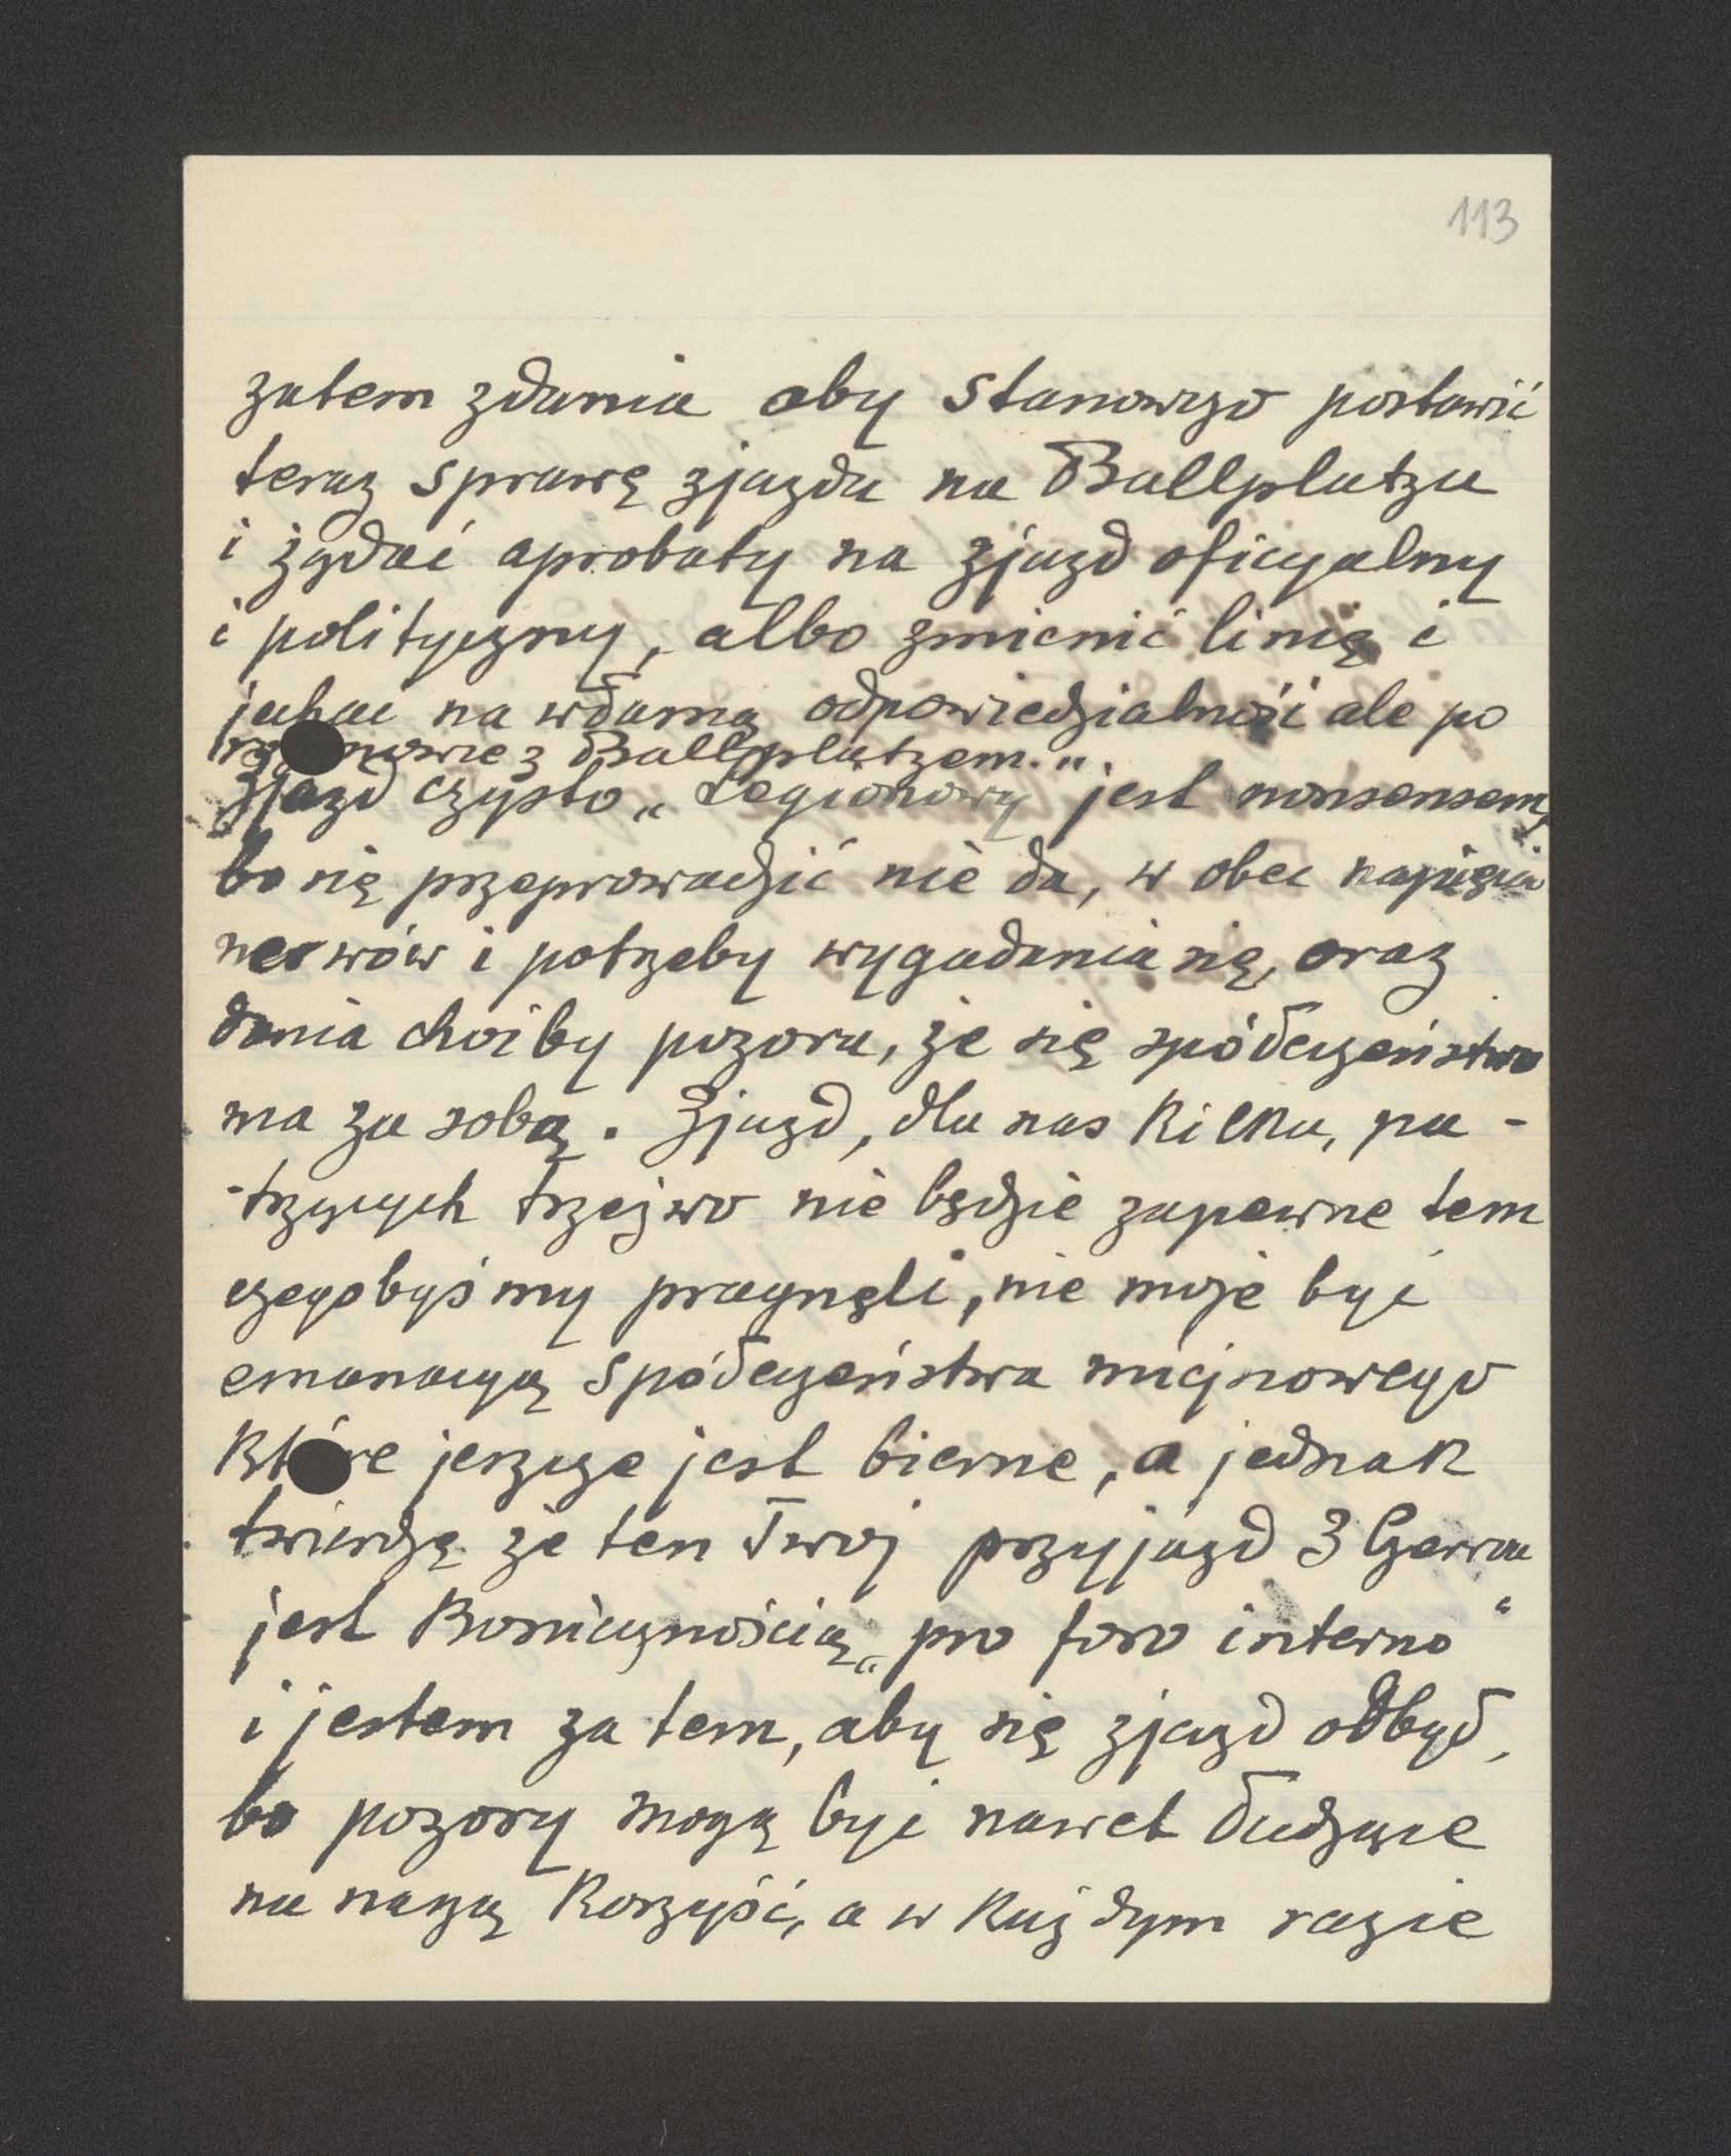 113
zatem zdania aby stanowczo postawić
teraz sprawę zjazdu na Ballplatzu
i żądać aprobaty na zjazd oficyalny
i polityczny, albo zmienić linię i
jechać na własną odpowiedzialność ale po
nowie z Ballplatzem.
Zjazd czysto „Legionowy" jest nonsensem,
bo się przeprowadzić nie da, w obec napięcia
nerwów i potrzeby wygadania się, oraz
dania choćby pozoru, że się społeczeństwo
ma za sobą. Zjazd, dla nas kilku, pa-
-trzących trzeźwo nie będzie zapewne tem
czegobyśmy pragnęli, nie może być
emanacyą społeczeństwa miejscowego
które jeszcze jest bierne, a jednak
twierdzę że ten Twój przyjazd 3
jest koniecznością „pro foro interno"
i jestem za tem, aby się zjazd odbył,
bo pozory mogą być nawet łudzące
na naszą korzyść, a w każdym razie